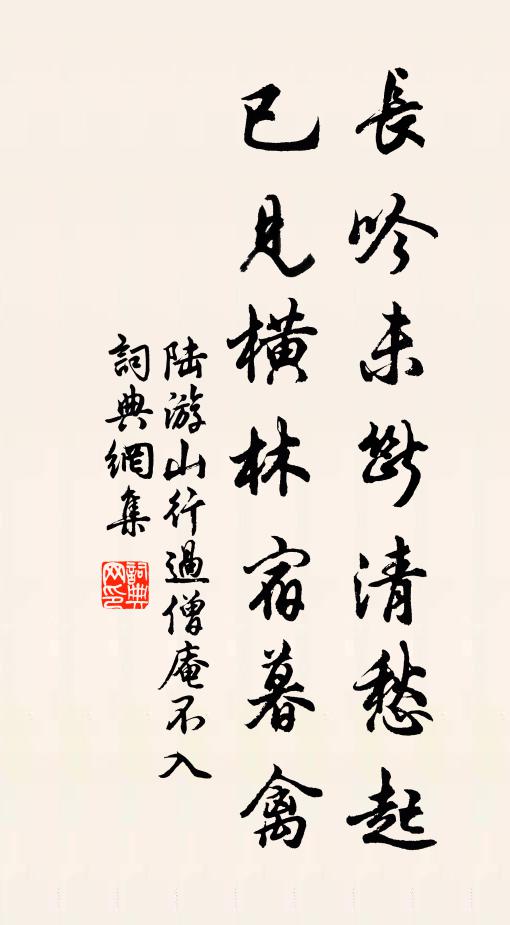 長吟未斷清愁起
已見橫林宿暮禽
陆游山行過僧庵不入
詞典網集
詞典网印